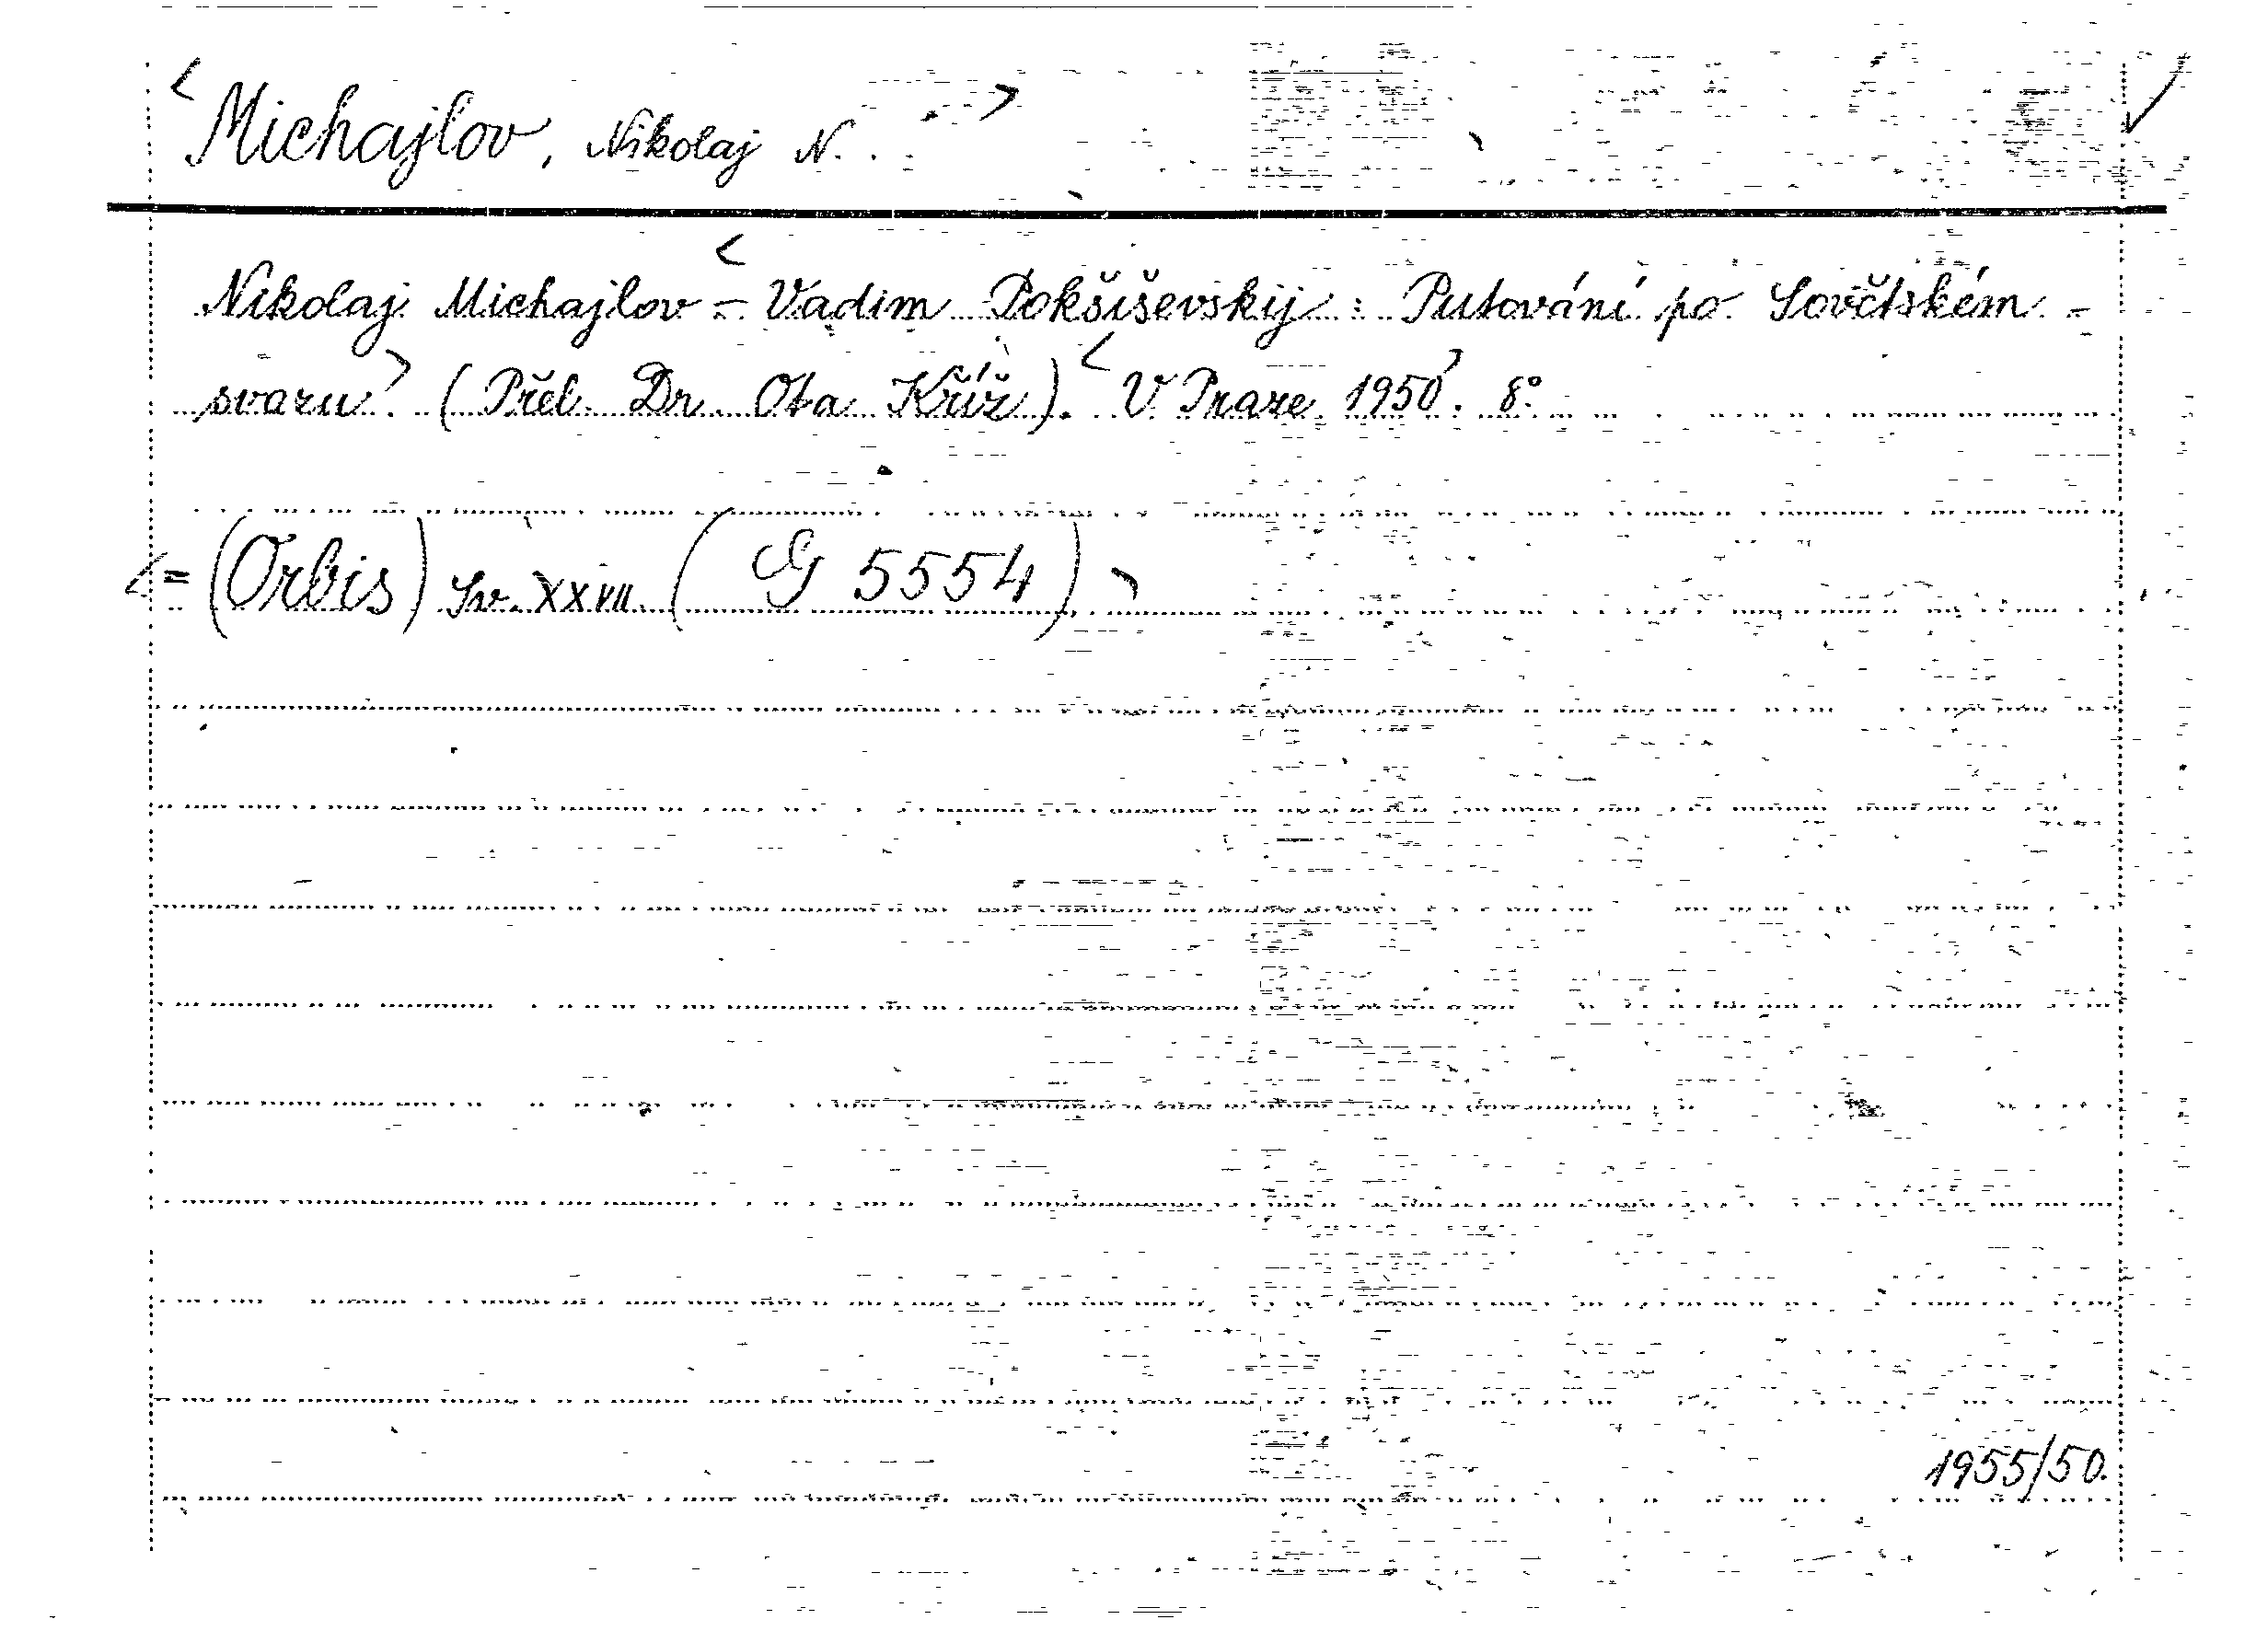 <Michajlov, Nikolaj N.>
<Nikolaj Michajlov - Vadim Pokšiševskij: Putování po Sovětském
svazu> (Přel. Dr. Ota Kříž). <V Praze 1950>. 8°
<= (Orbis) Sv. XXVII (G 5554)>
1955/50.